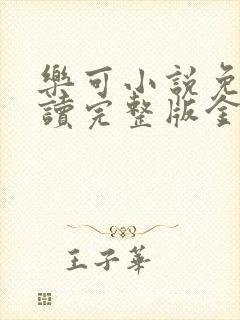 樂可小說免
讀完整版全
王子華